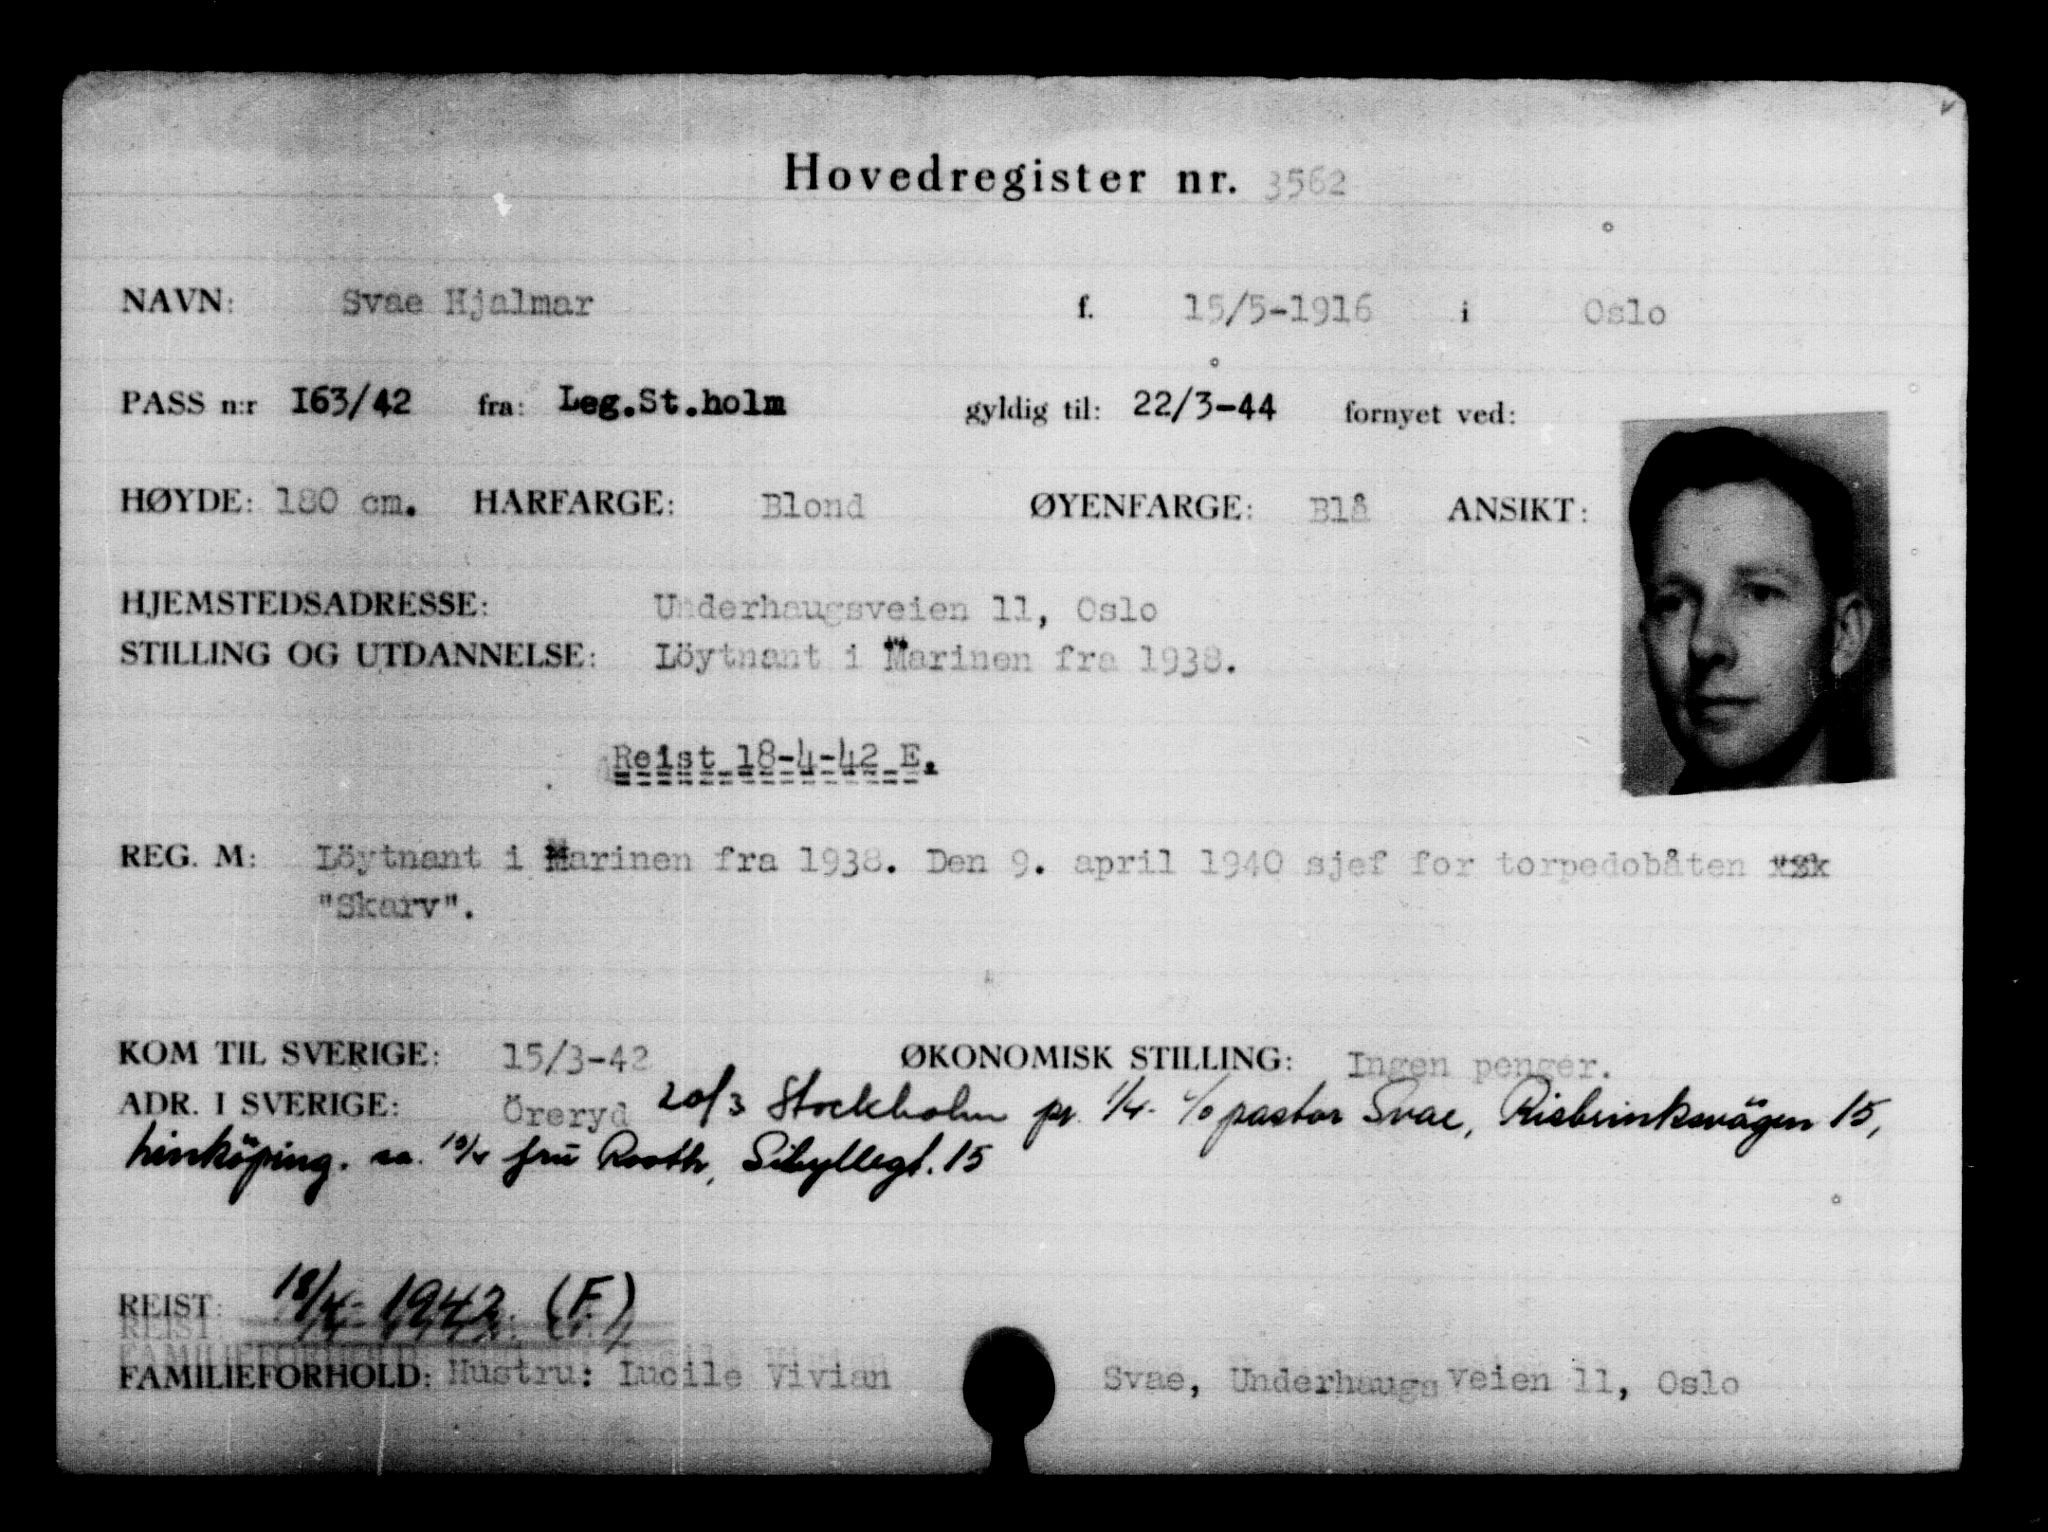 Hovedregister nr. 3562
NAVN: Svae Hjalmar f. 15/5-1916 i Oslo
PASS n:r I63/42 fra: Leg.St.holm gyldig til: 22/3-44 fornyet ved:
HØYDE: 180 cm. HÅRFARGE: Blond ØYENFARGE: Blå ANSIKT:
HJEMSTEDSADRESSE: Underhaugsveien 11, Oslo
STILLING OG UTDANNELSE: Löytnant i Marinen fra 1938.
Reist 18-4-42 E.
REG. M: Löytnant i Marinen fra 1938. Den 9. april 1940 sjef for torpedobåten
"Skarv".
KOM TIL SVERIGE: 15/3-42 ØKONOMISK STILLING: Ingen penger.
ADR. I SVERIGE: Öreryd 20/3 Stockholm pr. 1/4. c/o pastor Svae, Risbrinksvägen 15,
Linköping. 10/4 fru Rooth, Sibyllegt. 15
REIST: 18/4-1942. (F.)
FAMILIEFORHOLD: Hustru: Lucile Vivian Svae, Underhaugsveien 11, Oslo